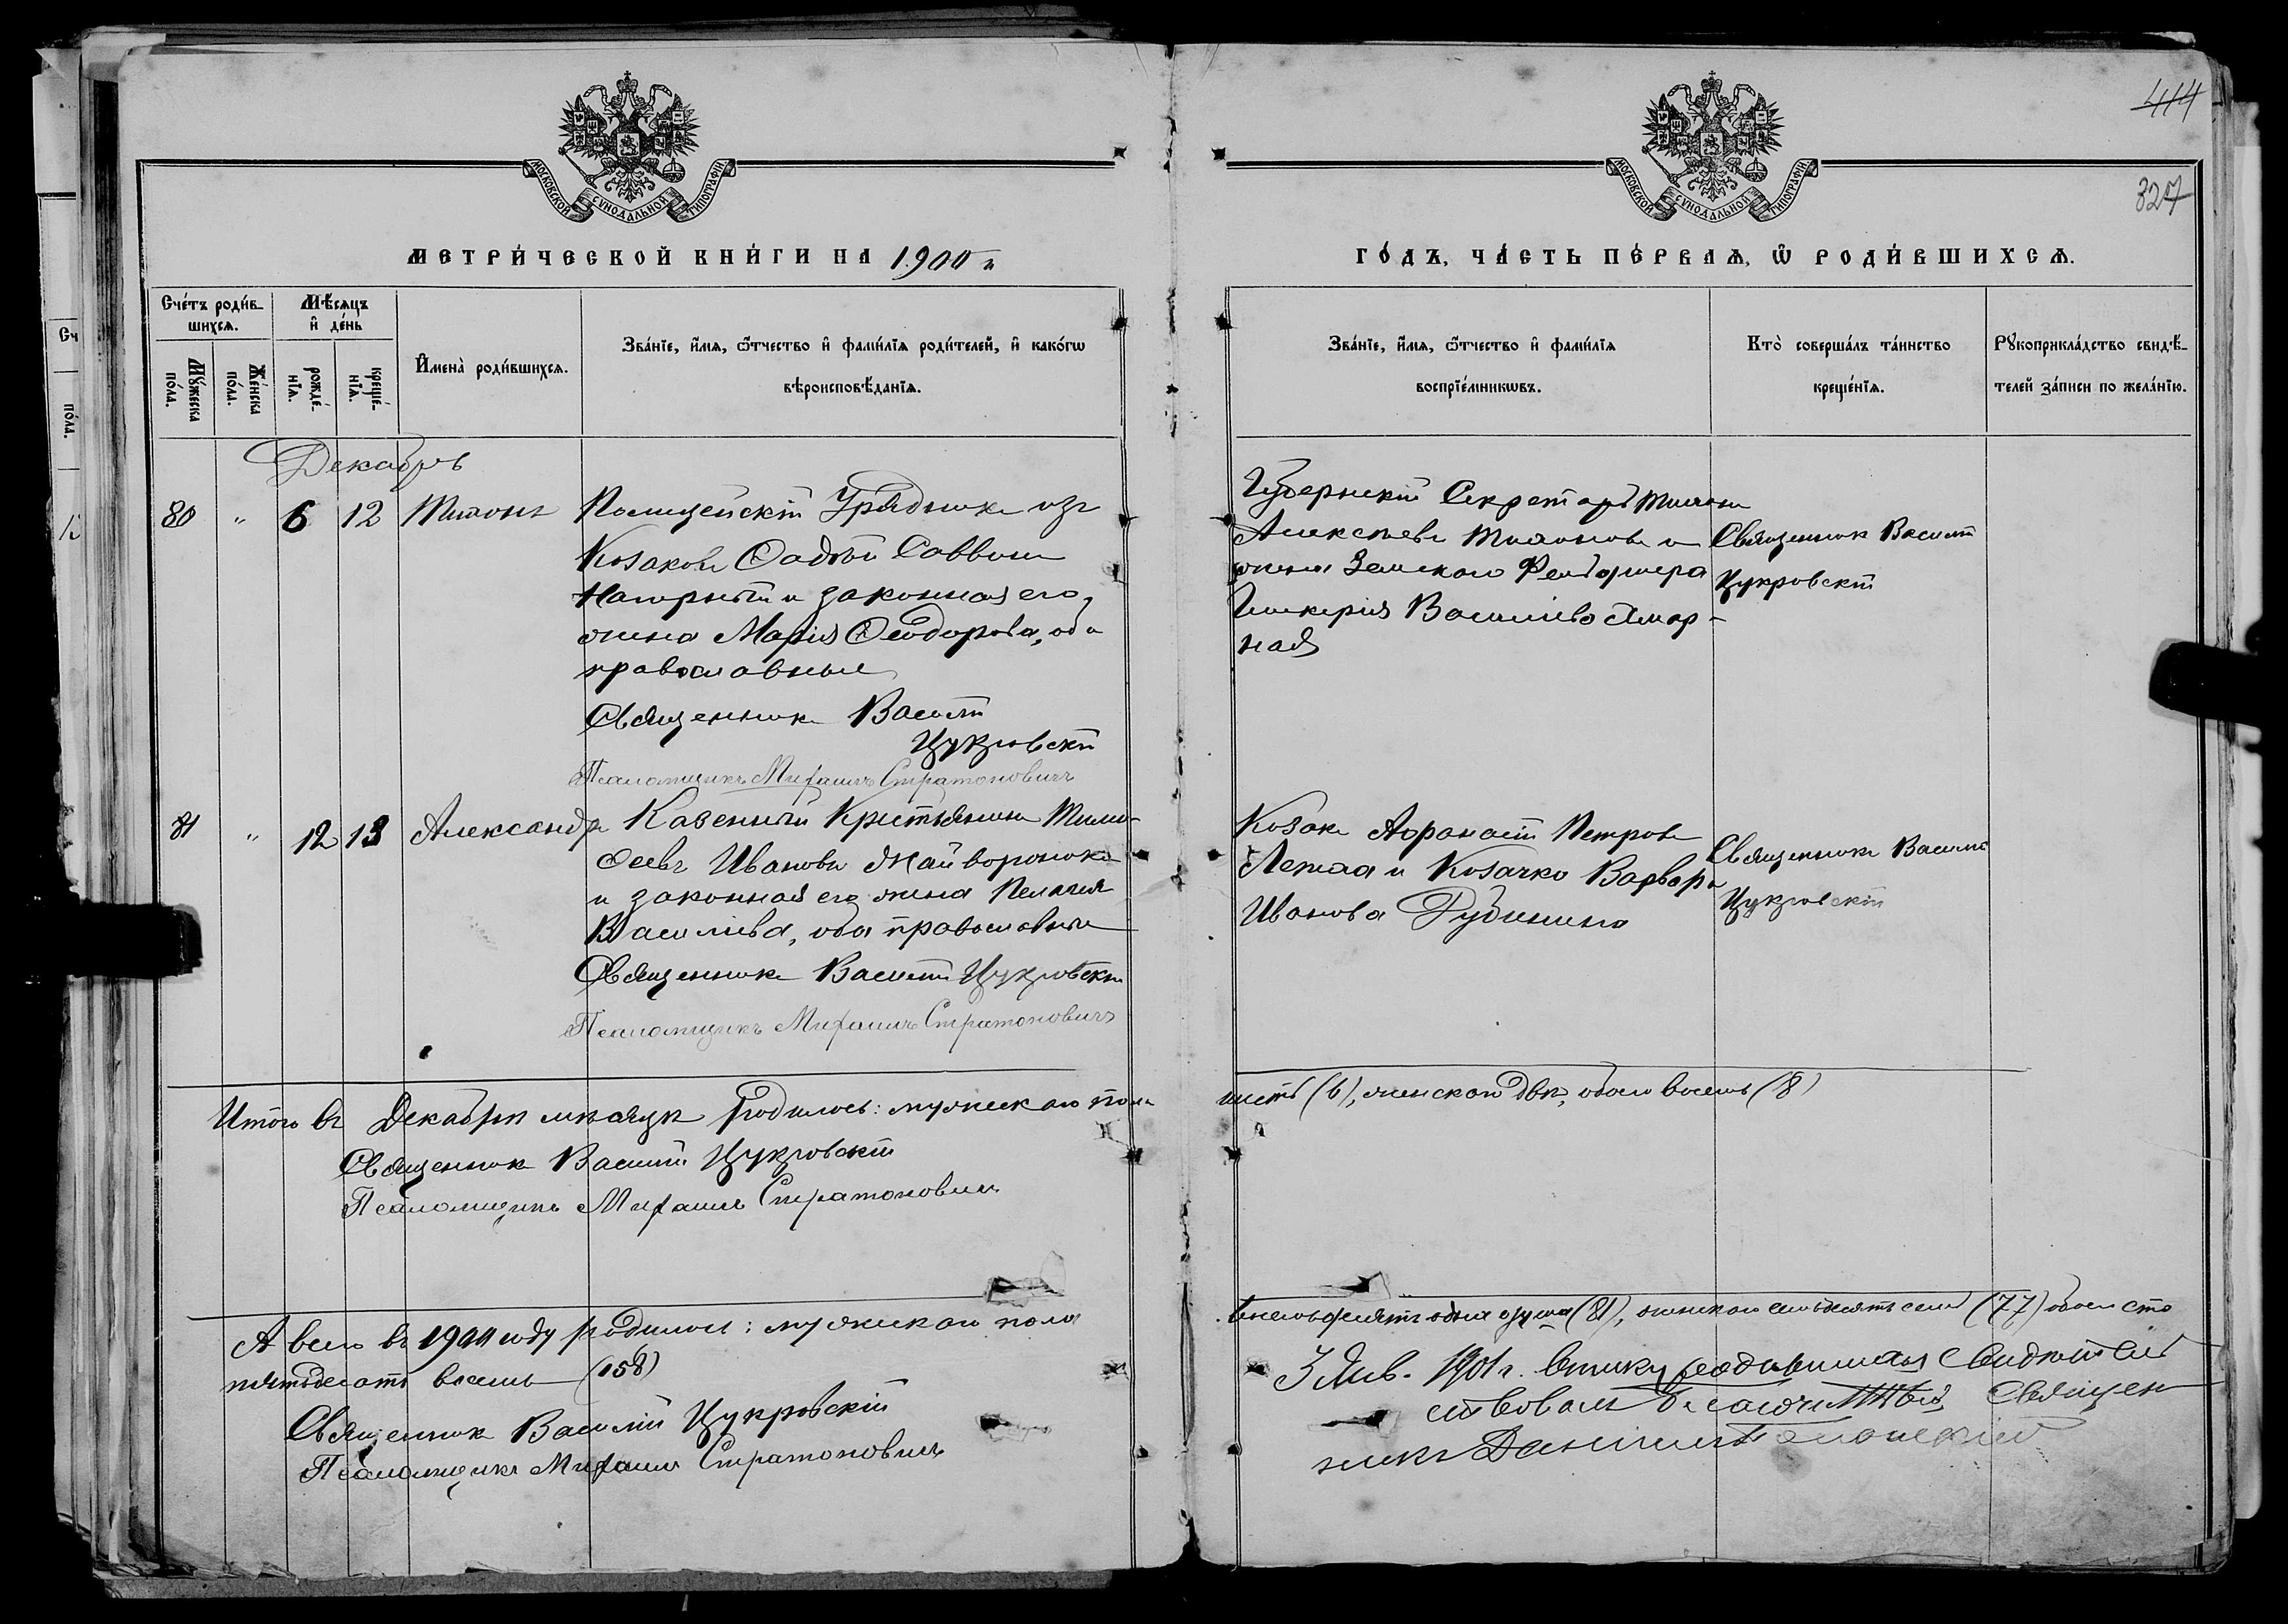 414
327
МОСКОВСКОЙ СѴНОДАЛЬНОЙ ТИПОГРАФІИ
МОСКОВСКОЙ СѴНОДАЛЬНОЙ ТИПОГРАФІИ
МЕТРИ́ЧЕСКОЙ КНИ́ГИ НА 1900 й
ГО́ДЪ, ЧА́СТЬ ПЕ́РВАѦ, Ѿ РОДИ́ВШИХСѦ.
Сче́тъ роди́в-
шихсѧ.
Мꙋ́жеска по́ла.
Же́нска по́ла.
Мѣ́сѧцъ
и҆ де́нь
рожде́-
нїѧ.
креще́-
нїѧ.
И҆мена̀ роди́вшихсѧ.
Зва́нїе, и҆́мѧ, ѻ҆́тчество и҆ фами́лїѧ роди́телей, и҆ како́гѡ
вѣроисповѣ́данїѧ.
Зва́нїе, и҆́мѧ, ѻ҆́тчество и҆ фами́лїѧ
воспрїе́мникѡвъ.
Кто̀ соверша́лъ та́инство
креще́нїѧ.
Рꙋкоприкла́дство свидѣ́-
телей за́писи по жела́нїю.
Декабрь
80 " 6 12 Тихонъ Полицейскій Урядникъ изъ
Козаковъ Фадѣй Саввинъ
Нагорный и законная его
жена Марія Ѳеодорова, оба
православные
Священникъ Василій
Цукровскій
Псаломщикъ Михаилъ Стратоновичъ
Губернскій Секретарь Тихонъ
Алексѣевъ Тихоновъ и
жена Земского Фельдшера
Гликерія Василіева
ная
Священникъ Василій
Цукровскій
81 " 12 13 Александръ Казенный Крестьянинъ Тимо-
ѳеевъ Ивановъ Жайворонокъ
и законная его жена Пелагія
Василіева, оба православные
Священникъ Василій Цукровскій
Псаломщикъ Михаилъ Стратоновичъ
Козакъ Аѳанасій Петровъ
и Козачка Варвара
Иванова Рубинина
Священникъ Василій
Цукровскій
Итого въ Декабрѣ мѣсяцѣ родилось: мужескаго пола
шесть (6), женскаго двѣ, обоего восемь (8)
Священникъ Василій Цукровскій
Псаломщикъ Михаилъ Стратоновичъ
А всего въ 1900 году родилось: мужескаго пола
восемьдесятъ одна душа (81), женскаго семьдесятъ семь (77) обоего сто
пятьдесятъ восемь (158)
Священникъ Василій Цукровскій
Псаломщикъ Михаилъ Стратоновичъ
3 Янв. 1901 г. родившихся Свидѣтель
ствовалъ благочинный Священ
никъ Даніилъ